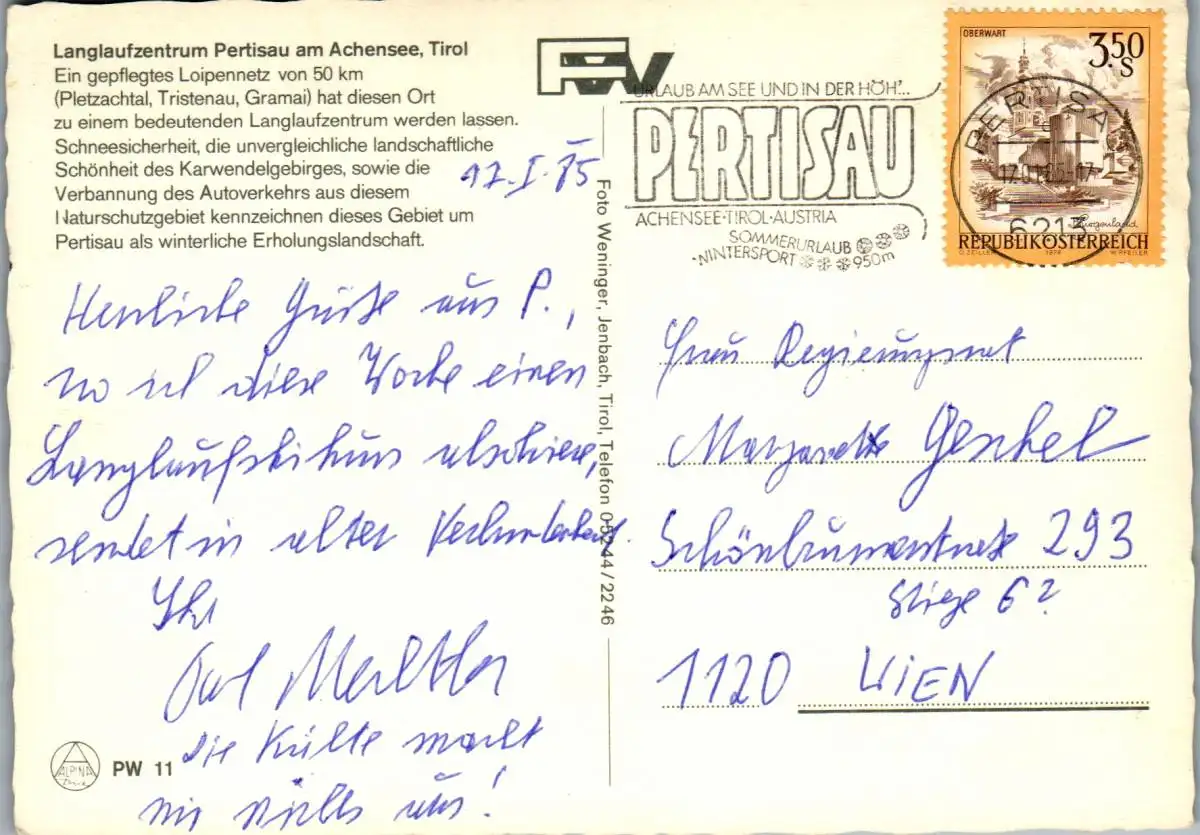 Langlaufzentrum Pertisau am Achensee, Tirol
Ein gepflegtes Loipennetz von 50 km
(Pletzachtal, Tristenau, Gramai) hat diesen Ort
zu einem bedeutenden Langlaufzentrum werden lassen.
Schneesicherheit, die unvergleichliche landschaftliche
Schönheit des Karwendelgebirges, sowie die
Verbannung des Autoverkehrs aus diesem
Naturschutzgebiet kennzeichnen dieses Gebiet um
Pertisau als winterliche Erholungslandschaft.
17.I.85
Herzliche Grüße aus P.,
wo ich diese Woche einen
Langlaufskikurs absolviere,
sendet in alter Verbundenheit
Ihr
die Kälte macht
mir nichts aus!
ALPINA
PW 11
Foto Weninger, Jenbach, Tirol, Telefon 05244/2246
URLAUB AM SEE UND IN DER HÖH'...
PERTISAU
ACHENSEE·TIROL·AUSTRIA
SOMMERURLAUB
WINTERSPORT 950m
OBERWART
3.50
S
Burgenland
REPUBLIK ÖSTERREICH
PERTISA
17.01.85-17
6213
Frau Regierungsrat
Margarete Geschel
Schönbrunnerstraße 293
Stiege 6?
1120 WIEN